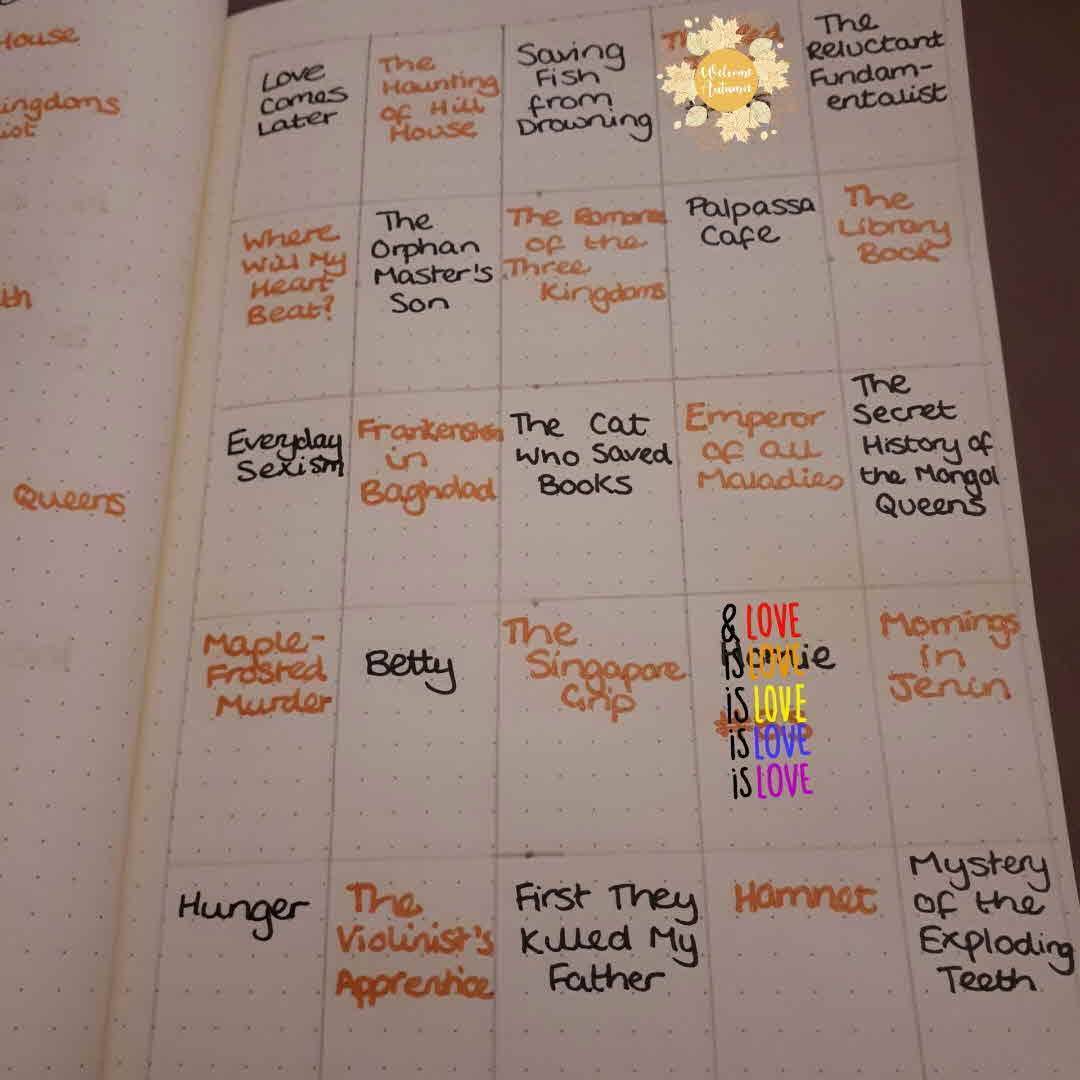 House
ingdoms
iot
ith
Queens
Love
Comes
Later
The
Haunting
of Hill
House
Saving
Fish
from
Drowning
Welcome
Autumn
The
Reluctant
Fundam-
entalist
Where
Will My
Heart
Beat?
The
Orphan
Master's
Son
The Romance
of the
Three
Kingdoms
Palpassa
Cafe
The
Library
Book
Everyday
Sexism
Frankenstein
in
Baghdad
The Cat
Who Saved
Books
Emperor
of all
Maladies
The
Secret
History of
the Mongol
Queens
Maple-
Frosted
Murder
Betty
The
Singapore
Grip
& LOVE
is LOVE
is LOVE
is LOVE
is LOVE
Mornings
in
Jenin
Hunger
The
Violinist's
Apprentice
First They
Killed My
Father
Hamnet
Mystery
of the
Exploding
Teeth